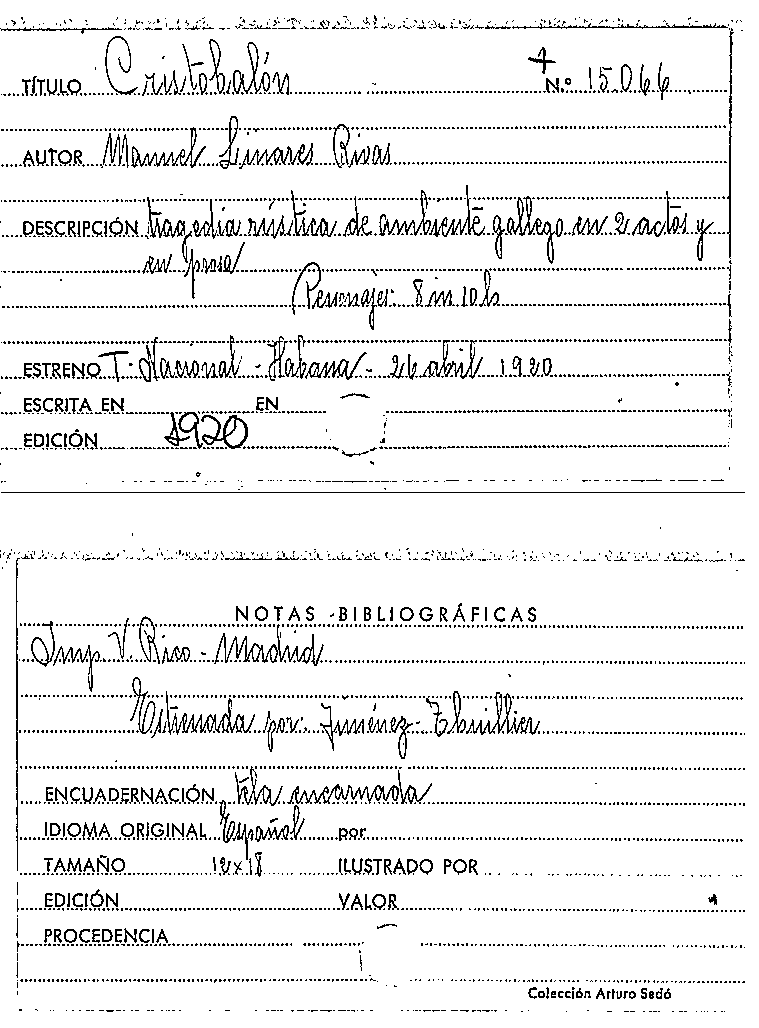 TÍTULO Cristobalón N.º 15066
AUTOR Manuel Linares Rivas
DESCRIPCIÓN tragedia rústica de ambiente gallego en 2 actos y
en prosa
Personajes: 8 m 10 h
ESTRENO T. Nacional - Habana - 26 abril 1920
ESCRITA EN EN
EDICIÓN 1920
NOTAS BIBLIOGRÁFICAS
Imp V. Rico - Madrid
Estrenada por: Jiménez - Thuillier
ENCUADERNACIÓN tela encarnada
IDIOMA ORIGINAL Español por
TAMAÑO 12x18 ILUSTRADO POR
EDICIÓN VALOR
PROCEDENCIA
Colección Arturo Sedó